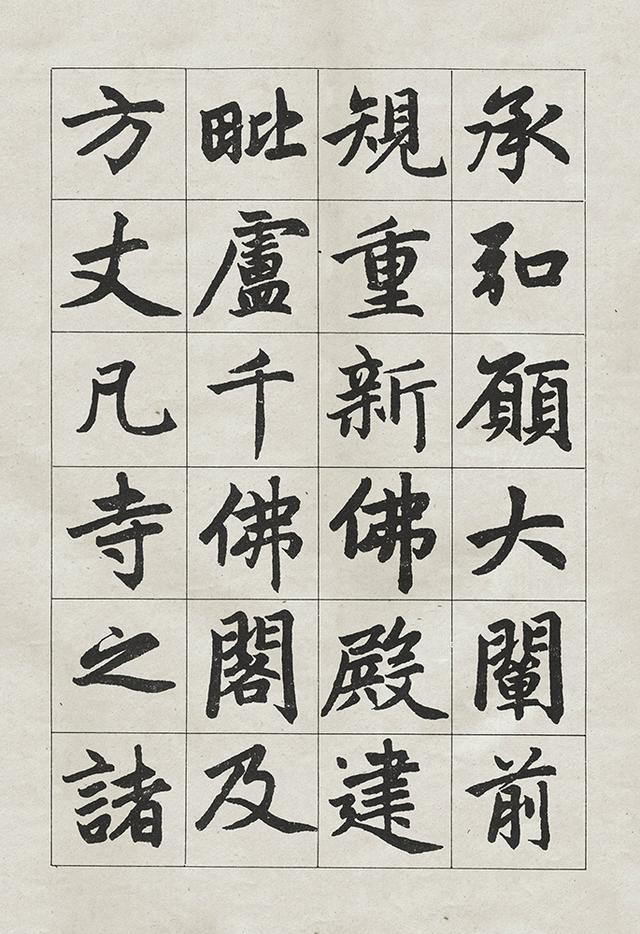 承弘願大闡前
規重新佛殿建
毗盧千佛閣及
方丈凡寺之諸